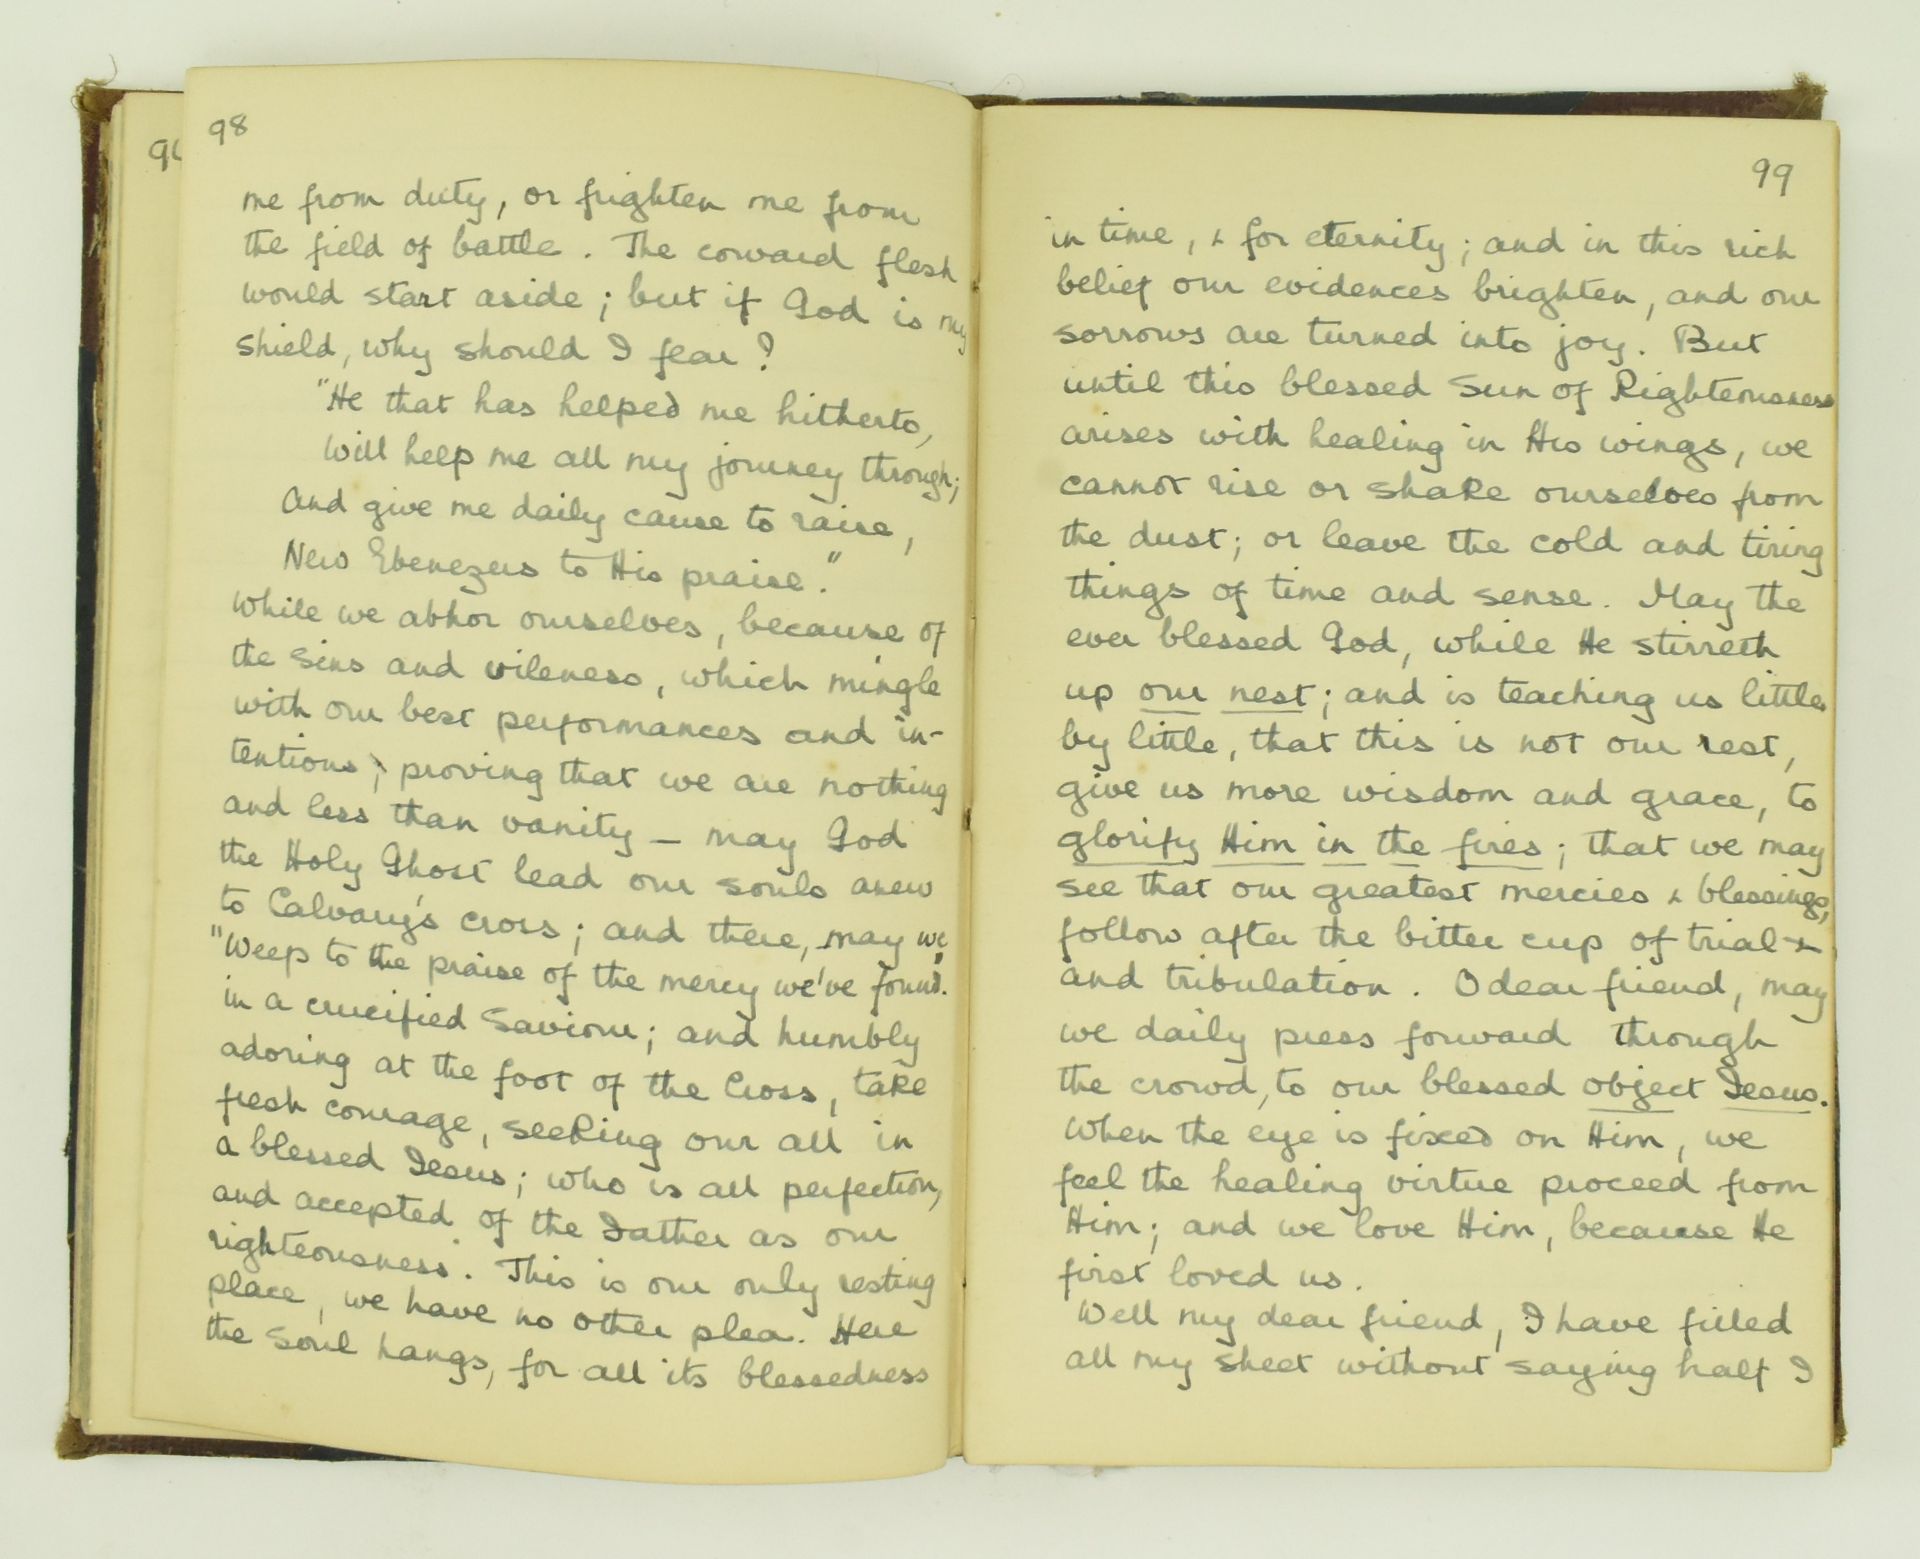 98
me from duty, or frighten me from
the field of battle. The coward flesh
would start aside; but if God is my
shield, why should I fear?
"He that has helped me hitherto,
Will help me all my journey through;
And give me daily cause to raise,
New Ebenezers to His praise."
While we abhor ourselves, because of
the sins and vileness, which mingle
with our best performances and in-
tentions, proving that we are nothing
and less than vanity — may God
the Holy Ghost lead our souls anew
to Calvary's cross; and there, may we
"Weep to the praise of the mercy we've found."
in a crucified Saviour; and humbly
adoring at the foot of the Cross, take
fresh courage, seeking our all in
a blessed Jesus; who is all perfection,
and accepted of the Father as our
righteousness. This is our only resting
place, we have no other plea. Here
the soul hangs, for all its blessedness
99
in time, & for eternity; and in this rich
belief our evidences brighten, and our
sorrows are turned into joy. But
until this blessed Sun of Righteousness
arises with healing in His wings, we
cannot rise or shake ourselves from
the dust; or leave the cold and tiring
things of time and sense. May the
ever blessed God, while He stirreth
up our nest; and is teaching us little
by little, that this is not our rest,
give us more wisdom and grace, to
glorify Him in the fires; that we may
see that our greatest mercies & blessings,
follow after the bitter cup of trial &
and tribulation. O dear friend, may
we daily press forward through
the crowd, to our blessed object Jesus.
When the eye is fixed on Him, we
feel the healing virtue proceed from
Him; and we love Him, because He
first loved us.
Well my dear friend, I have filled
all my sheet without saying half I